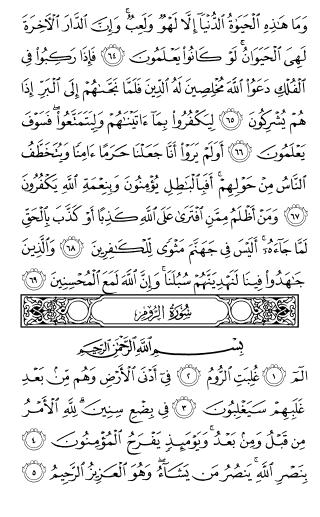 وَمَا هَٰذِهِ الْحَيَوٰةُ الدُّنْيَآ إِلَّا لَهْوٌ وَلَعِبٌ ۚ وَإِنَّ الدَّارَ الْآخِرَةَ
لَهِىَ الْحَيَوَانُ ۚ لَوْ كَانُوا۟ يَعْلَمُونَ ﴿٦٤﴾ فَإِذَا رَكِبُوا۟ فِى
الْفُلْكِ دَعَوُا۟ اللَّهَ مُخْلِصِينَ لَهُ الدِّينَ فَلَمَّا نَجَّىٰهُمْ إِلَى الْبَرِّ إِذَا
هُمْ يُشْرِكُونَ ﴿٦٥﴾ لِيَكْفُرُوا۟ بِمَآ ءَاتَيْنَٰهُمْ وَلِيَتَمَتَّعُوا۟ ۖ فَسَوْفَ
يَعْلَمُونَ ﴿٦٦﴾ أَوَلَمْ يَرَوْا۟ أَنَّا جَعَلْنَا حَرَمًا ءَامِنًا وَيُتَخَطَّفُ
النَّاسُ مِنْ حَوْلِهِمْ ۚ أَفَبِالْبَٰطِلِ يُؤْمِنُونَ وَبِنِعْمَةِ اللَّهِ يَكْفُرُونَ
﴿٦٧﴾ وَمَنْ أَظْلَمُ مِمَّنِ افْتَرَىٰ عَلَى اللَّهِ كَذِبًا أَوْ كَذَّبَ بِالْحَقِّ
لَمَّا جَآءَهُۥٓ ۚ أَلَيْسَ فِى جَهَنَّمَ مَثْوًى لِّلْكَٰفِرِينَ ﴿٦٨﴾ وَالَّذِينَ
جَٰهَدُوا۟ فِينَا لَنَهْدِيَنَّهُمْ سُبُلَنَا ۚ وَإِنَّ اللَّهَ لَمَعَ الْمُحْسِنِينَ ﴿٦٩﴾
سُورَةُ الرُّومِ
بِسْمِ اللَّهِ الرَّحْمَٰنِ الرَّحِيمِ
الٓمٓ ﴿١﴾ غُلِبَتِ الرُّومُ ﴿٢﴾ فِىٓ أَدْنَى الْأَرْضِ وَهُم مِّنۢ بَعْدِ
غَلَبِهِمْ سَيَغْلِبُونَ ﴿٣﴾ فِى بِضْعِ سِنِينَ ۗ لِلَّهِ الْأَمْرُ
مِن قَبْلُ وَمِنۢ بَعْدُ ۚ وَيَوْمَئِذٍ يَفْرَحُ الْمُؤْمِنُونَ ﴿٤﴾
بِنَصْرِ اللَّهِ ۚ يَنصُرُ مَن يَشَآءُ ۖ وَهُوَ الْعَزِيزُ الرَّحِيمُ ﴿٥﴾